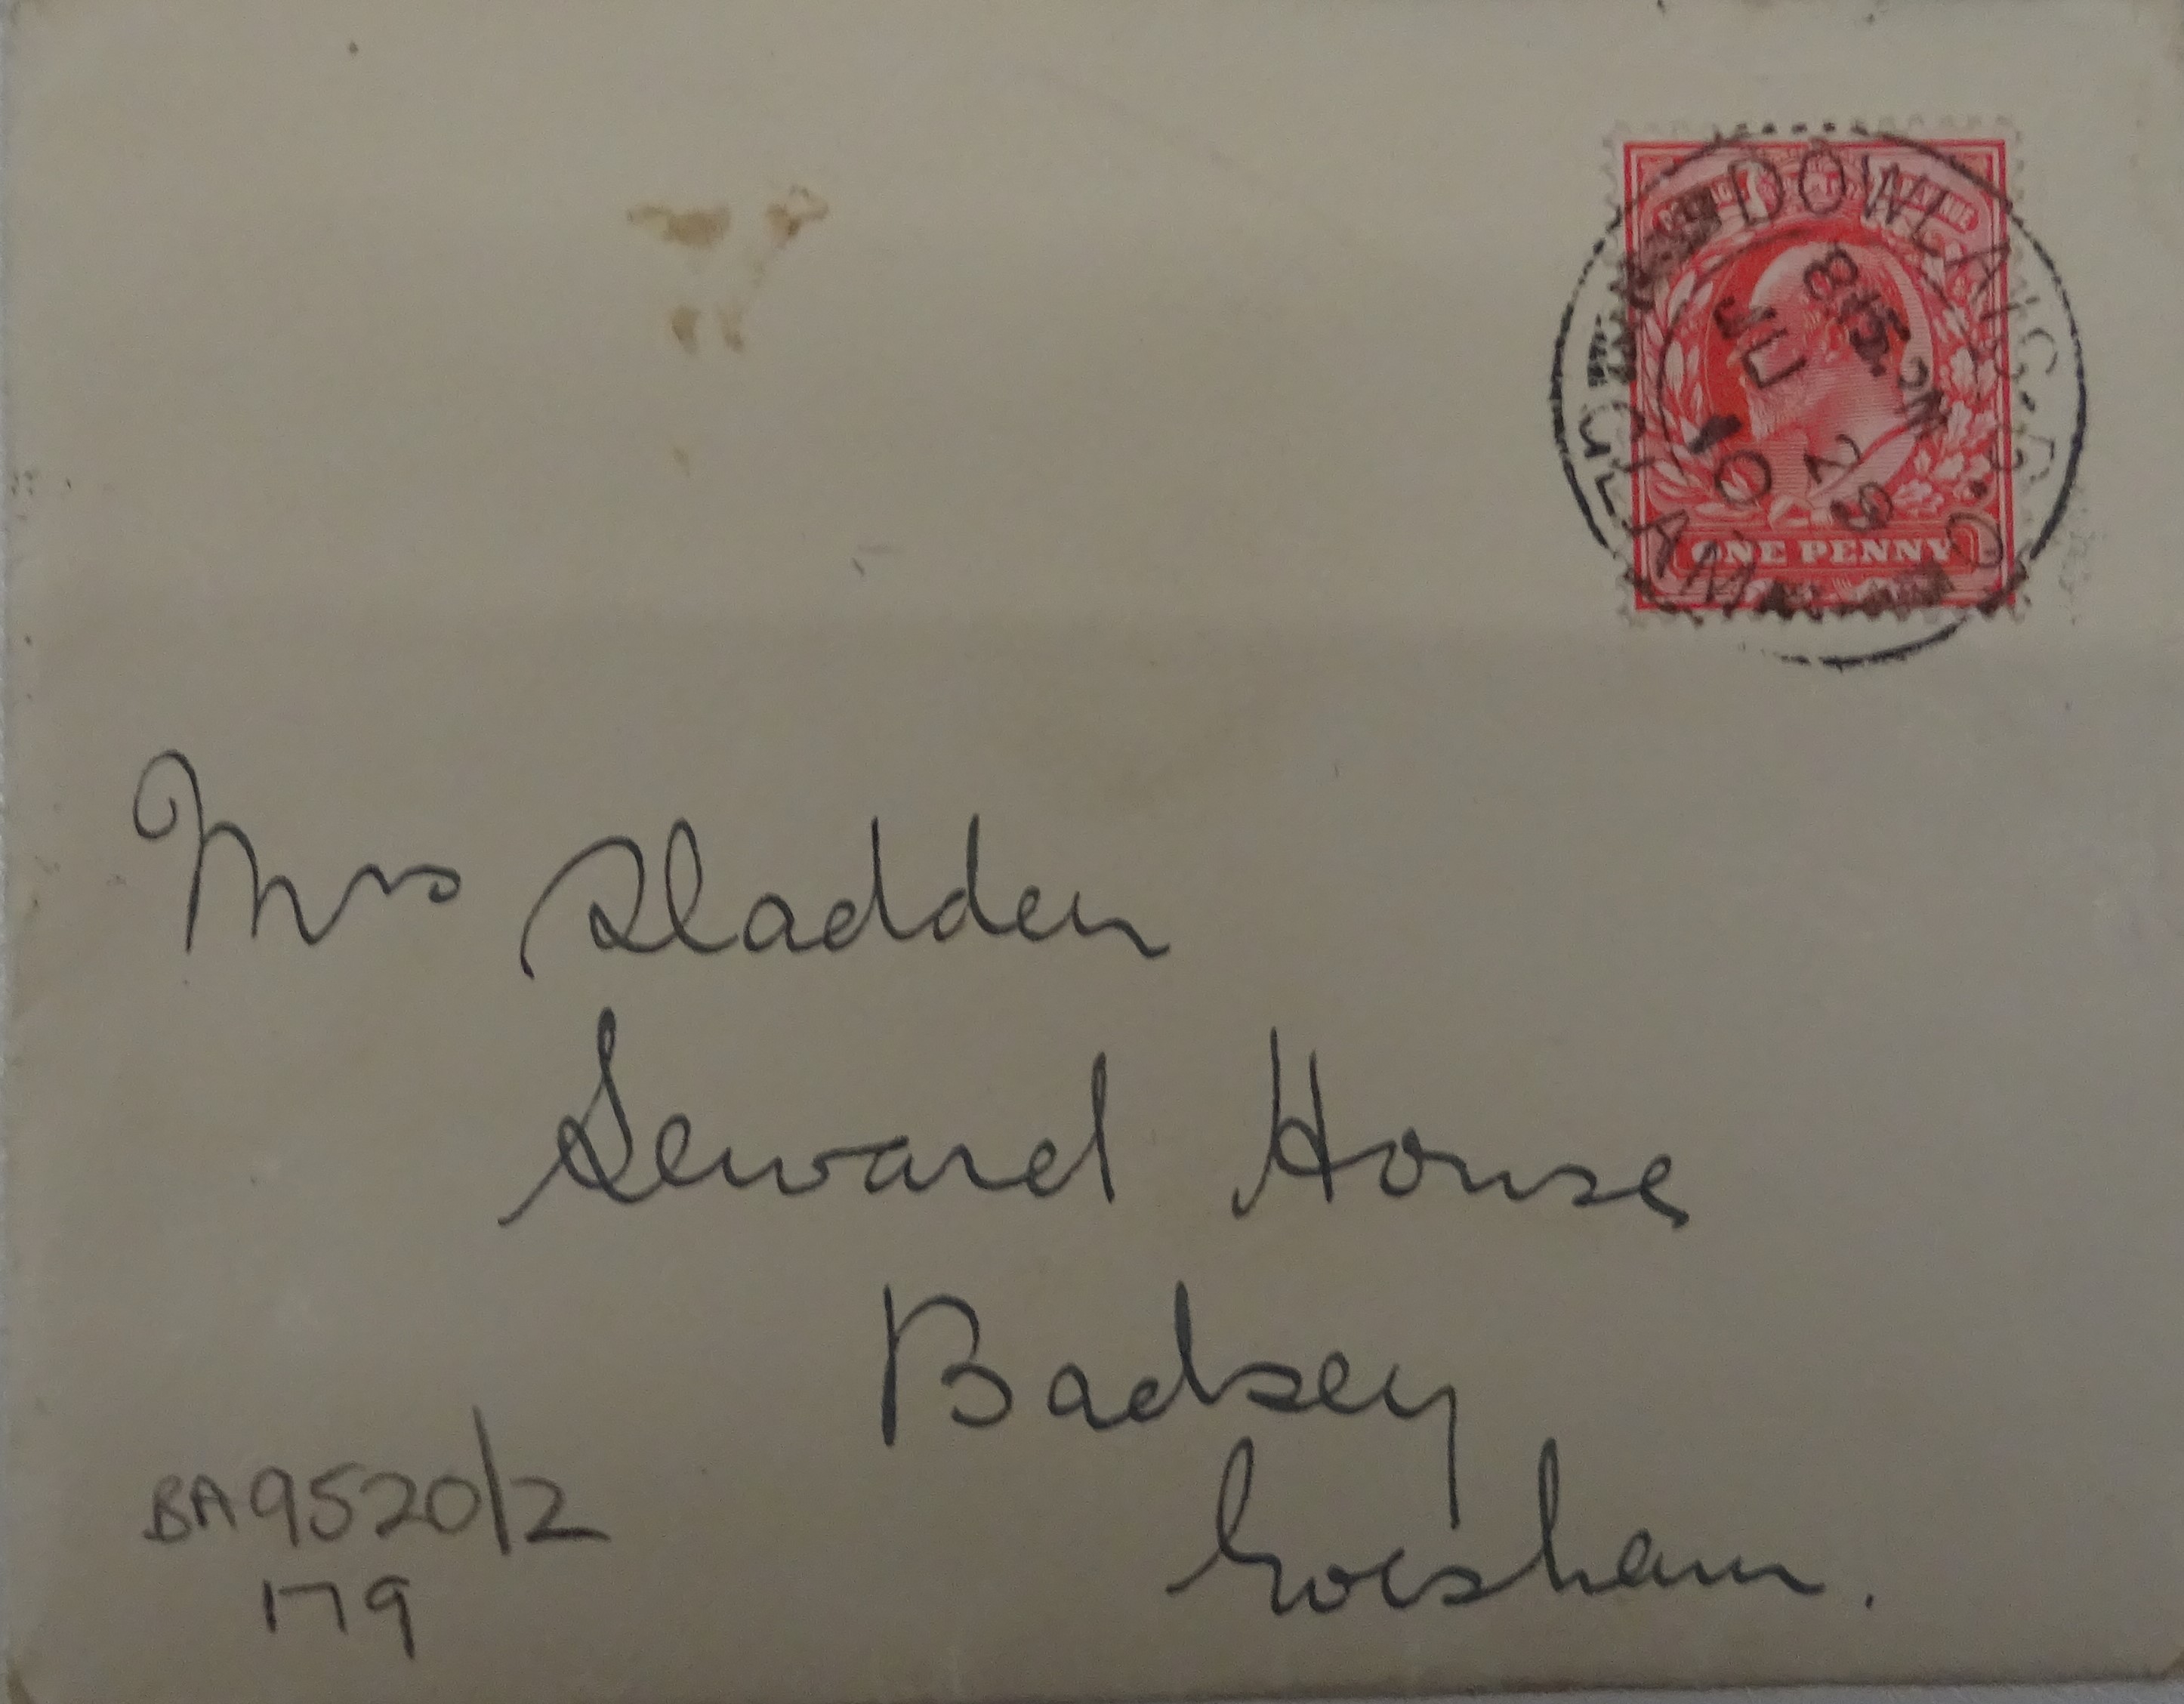 DOWLAIS S.O.
8.15 PM
JU 29
10
GLAM
ONE PENNY
Mrs Sladden
Seward House
Badsey
Evesham.
BA9520/2
179